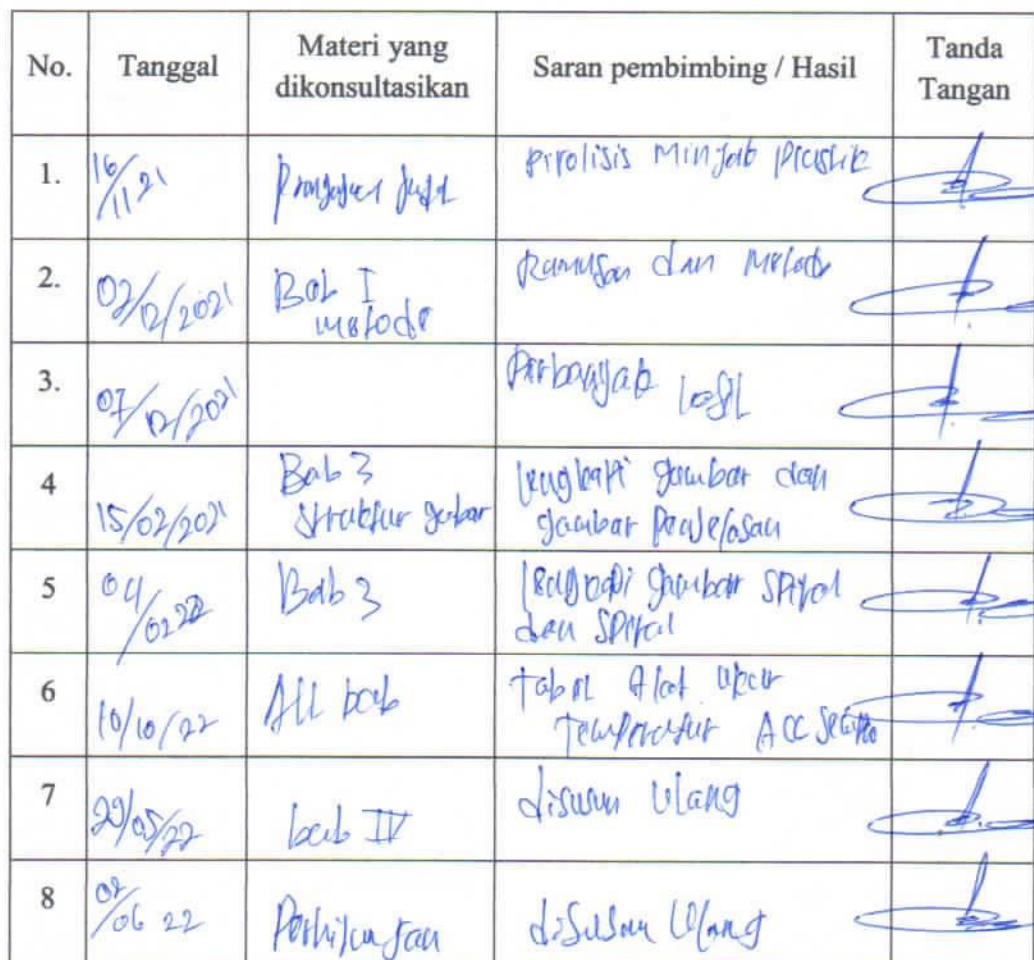 No. Tanggal Materi yang dikonsultasikan Saran pembimbing / Hasil Tanda Tangan
1. 16/11 21 Pirolisis Minjab Plastik
2. 02/12/2021 Bab I metode dan metode
3. 07/12/2021 hasil
4 15/02/2021 Bab 3 struktur gambar lengkapi gambar dan gambar Penjelasan
5 04/02 22 Bab 3 lengkapi gambar spiral dan spiral
6 10/10/22 All bab tabel Alat ukur Temperatur ACC
7 29/05/22 bab IV disusun Ulang
8 02/06 22 Perhitungan disusun Ulang